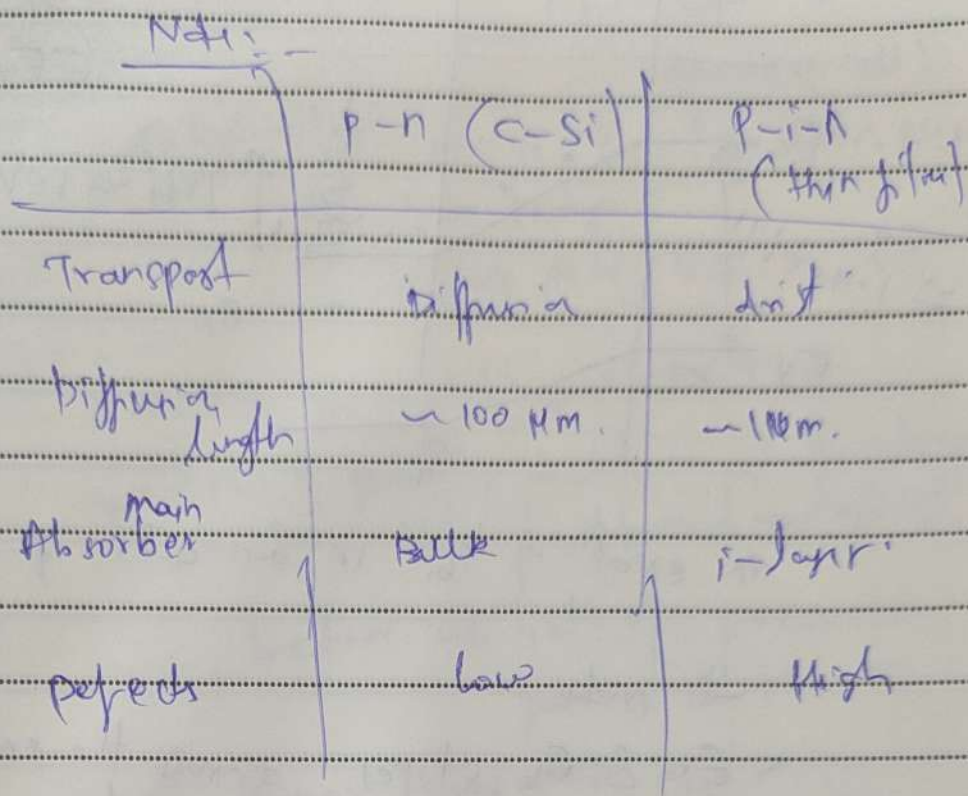 Note:-
P-n (C-Si) P-i-n
(thin film)
Transport Diffusion drift
Diffusion length ~ 100 μm. ~ 1 μm.
Main
Absorber Bulk i-layer.
Defects Low High